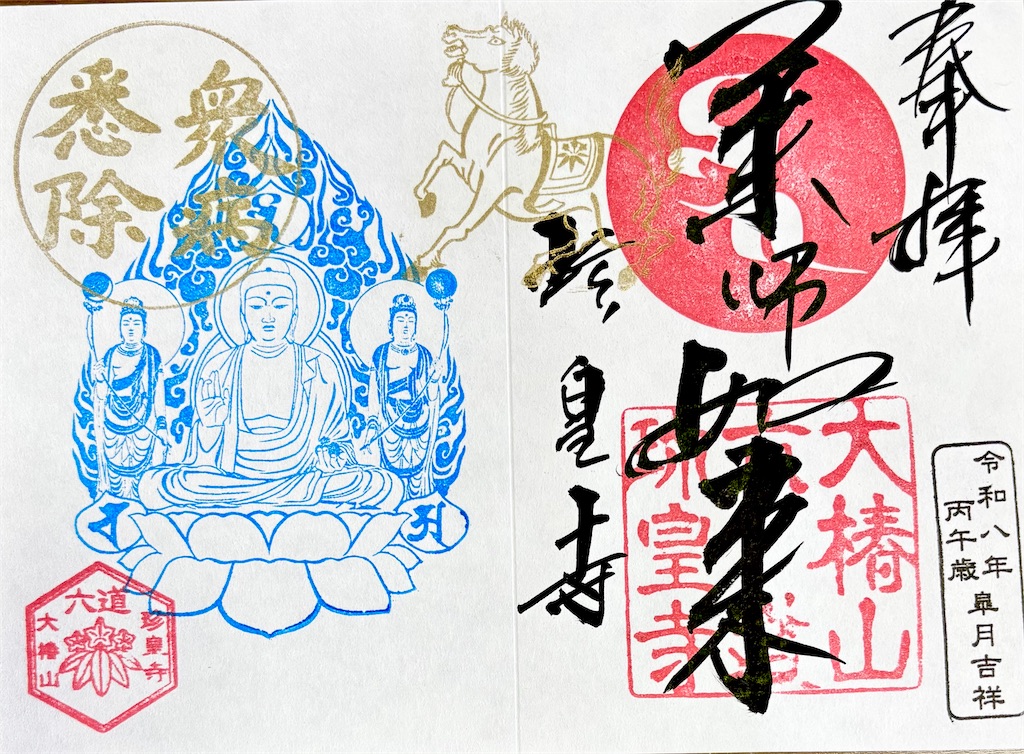 奉拝
令和八年
丙午歳
皐月吉祥
薬師如来
大椿山
珍皇寺
珍皇寺
衆病
悉除
六道
珍皇寺
大椿山